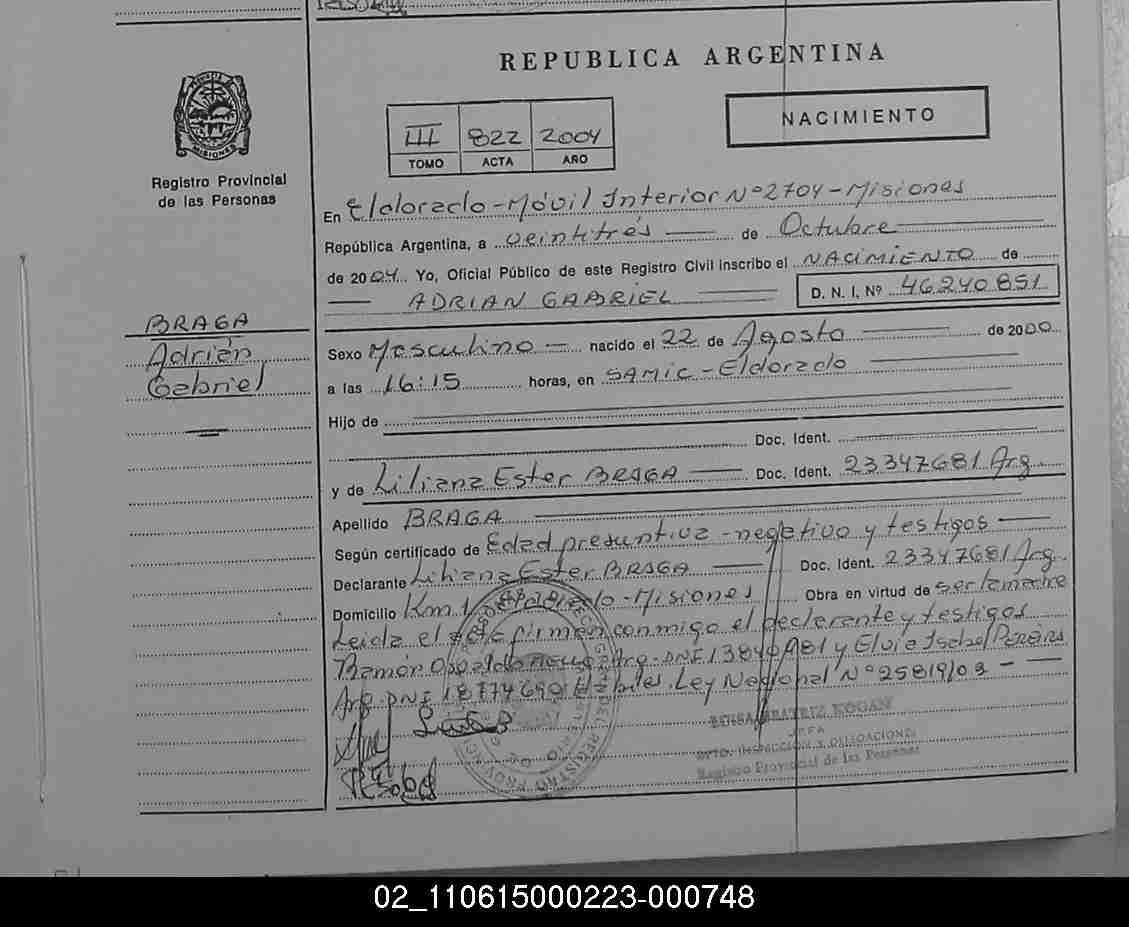 REPUBLICA ARGENTINA
III 822 2004
TOMO ACTA AÑO
NACIMIENTO
MISIONES
Registro Provincial
de las Personas
BRAGA
Adrián
Gabriel
En Eldorado - Móvil Interior Nº 2704 - Misiones
República Argentina, a veintitrés de Octubre
de 2004. Yo, Oficial Público de este Registro Civil inscribo el NACIMIENTO de
ADRIAN GABRIEL D. N. I. Nº 46240851
Sexo Masculino nacido el 22 de Agosto de 2000
a las 16:15 horas, en SAMIC - Eldorado
Hijo de
Doc. Ident.
y de Liliana Ester BRAGA Doc. Ident. 23347681 Arg.
Apellido BRAGA
Según certificado de Edad presuntiva - negativo y testigos
Declarante Liliana Ester BRAGA Doc. Ident. 23347681 Arg.
Domicilio Km. Eldorado - Misiones Obra en virtud de ser la madre
Leída el acta firman conmigo el declarante y testigos
Ramón Arg. DNI y Elvia Isabel Pereira
Arg. DNI 18774690 Hábiles. Ley Nacional Nº 25819/03
BEATRIZ KOGAN
JEFA
DPTO. INSPECCION Y DELEGACIONES
Registro Provincial de las Personas
02_110615000223-000748